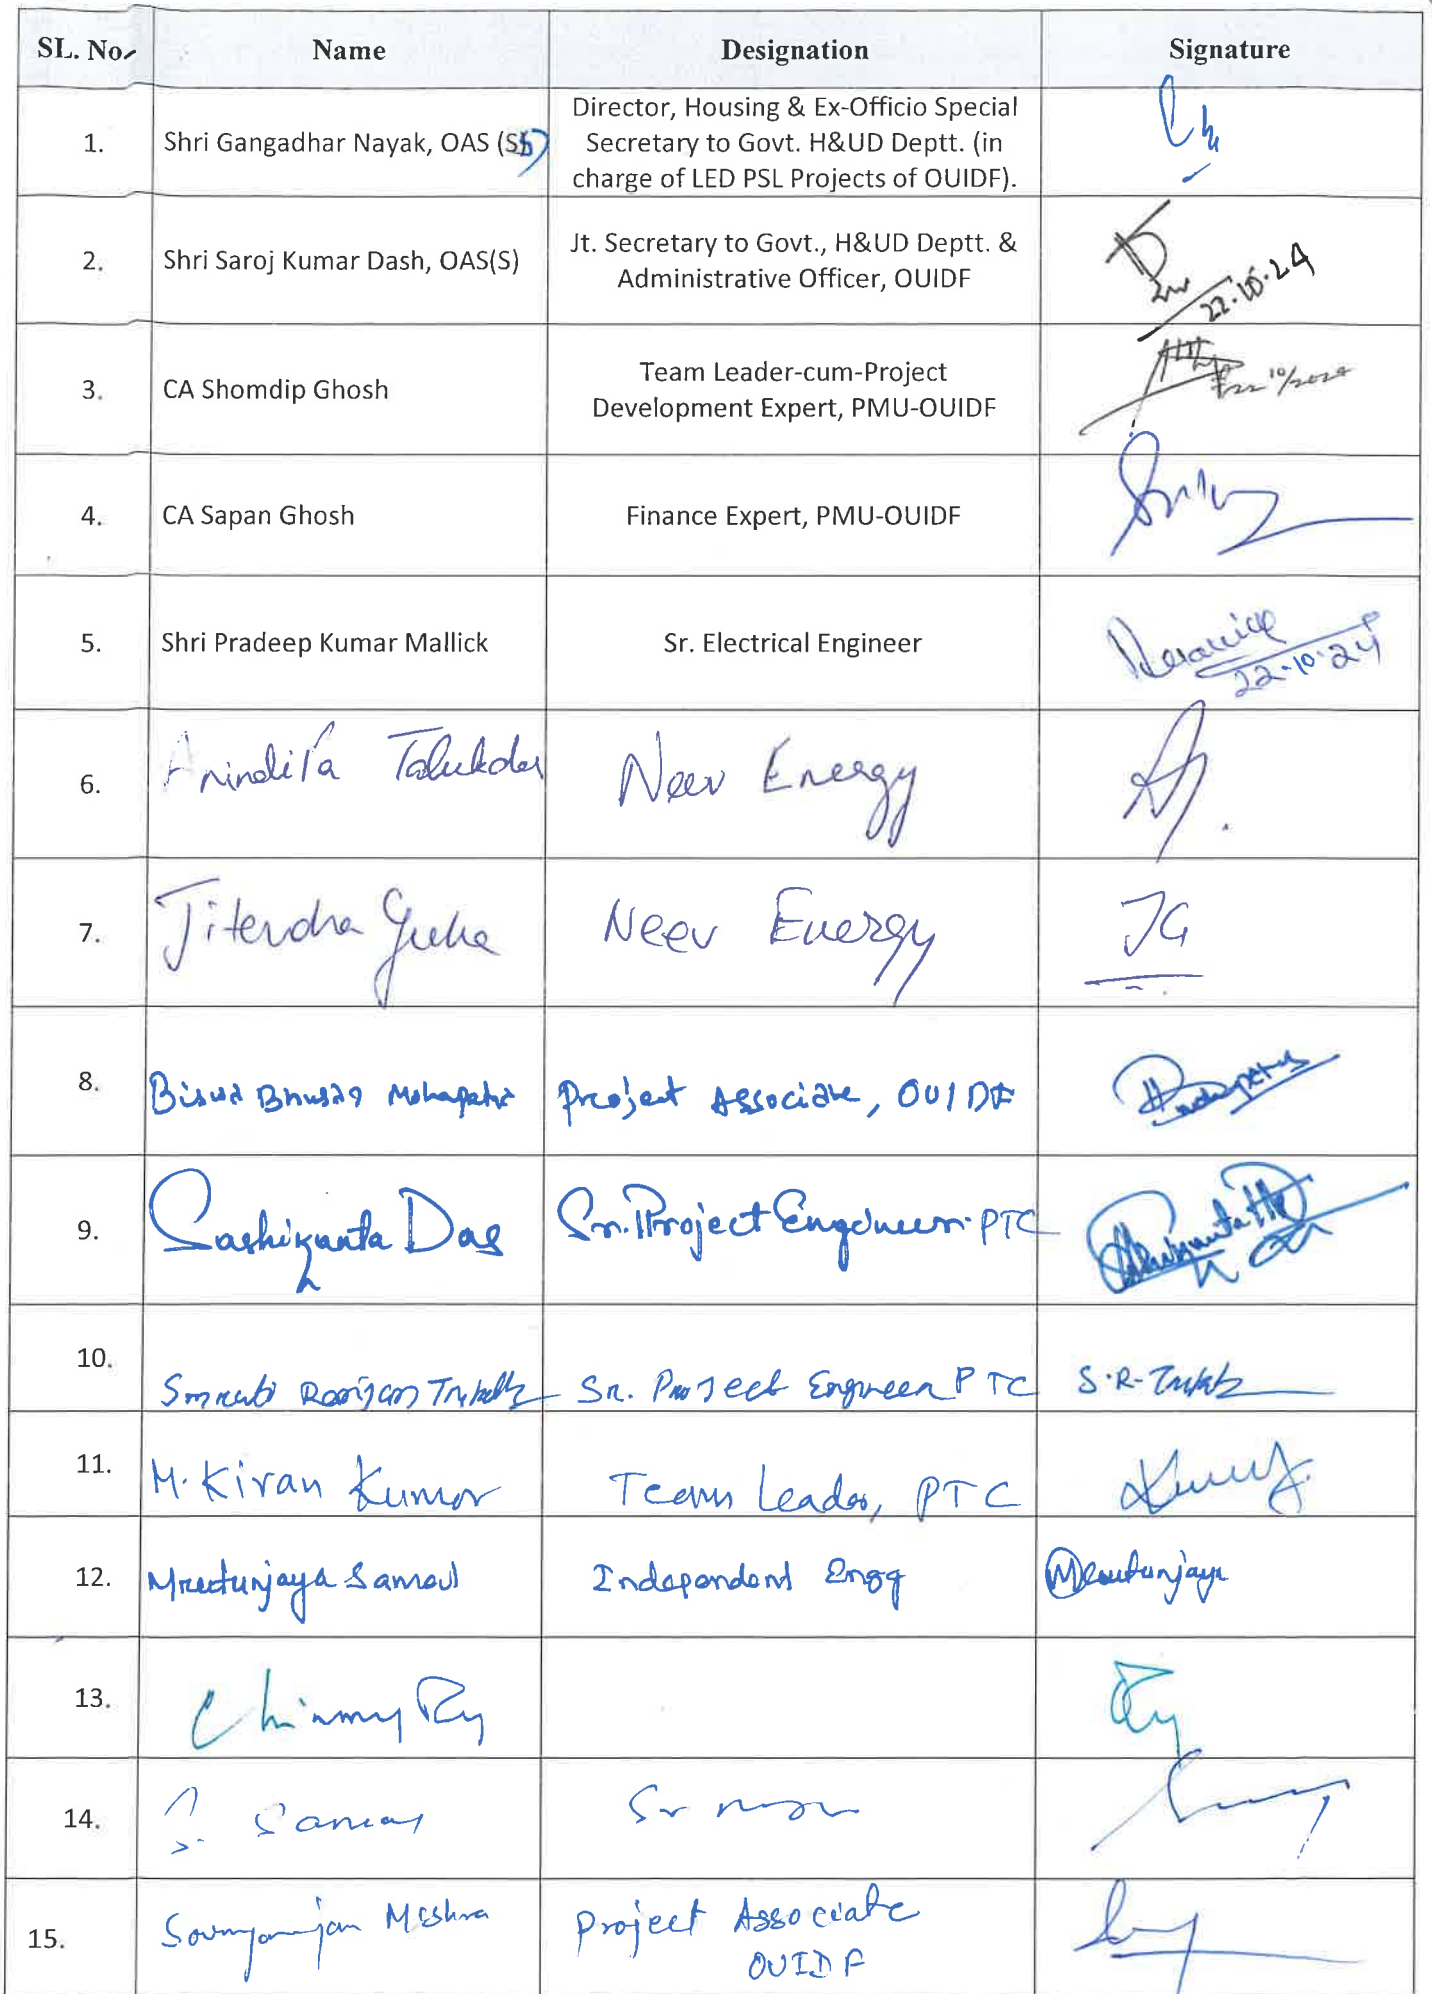 SL. No. Name Designation Signature
Director, Housing & Ex-Officio Special
1. Shri Gangadhar Nayak, OAS (SS) Secretary to Govt. H&UD Deptt. (in
charge of LED PSL Projects of OUIDF).
2. Shri Saroj Kumar Dash, OAS(S) Jt. Secretary to Govt., H&UD Deptt. &
Administrative Officer, OUIDF
22.10.24
3. CA Shomdip Ghosh Team Leader-cum-Project
Development Expert, PMU-OUIDF
22/10/2024
4. CA Sapan Ghosh Finance Expert, PMU-OUIDF
5. Shri Pradeep Kumar Mallick Sr. Electrical Engineer
22.10.24
6. Anindita Talukder Neev Energy
7. Jitendra Guha Neev Energy JG
8. Biswa Bhusan Mohapatra Project Associate, OUIDF
9. Sashikanta Das Sr. Project Engineer. PTC
10. Smruti Ranjan Tripathy Sr. Project Engineer PTC S.R. Tripathy
11. M. Kiran Kumar Team Leader, PTC
12. Mrutunjaya Samal Independent Engg Mrutunjaya
13. Chinmy Ry
14. S. Sanjay Sr
15. Soumyaranjan Mishra Project Associate
OUIDF